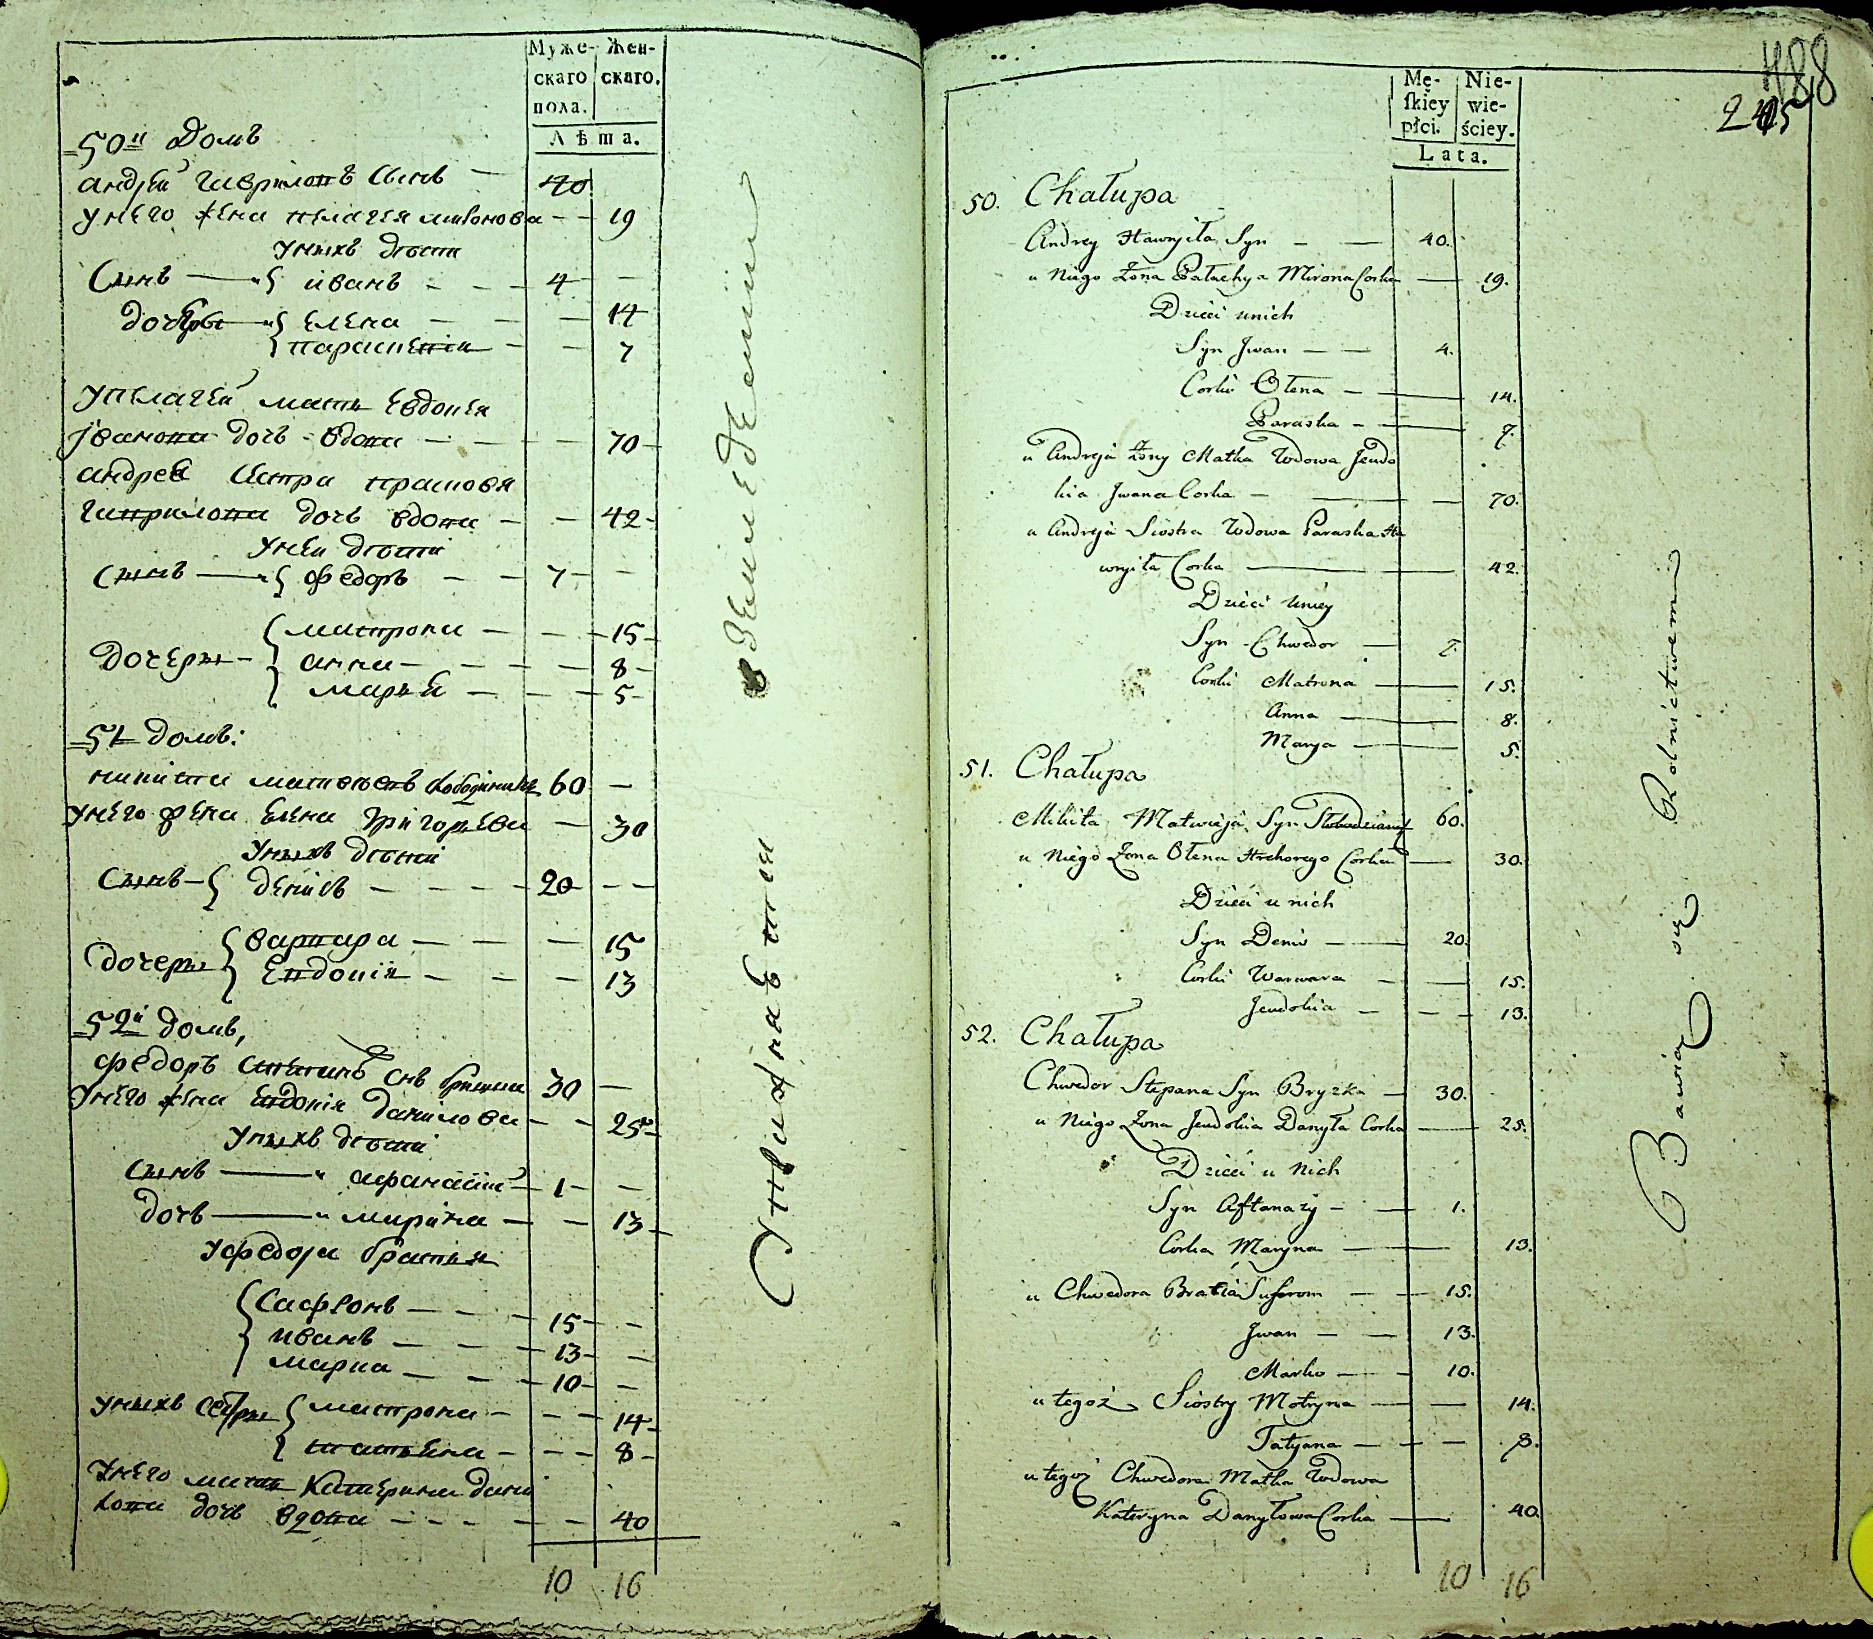 Муже- Жен-
скаго скаго.
пола.
Лѣта.
50й Домъ
андрей гавриловъ сынъ — 40
унего жена пелагея миронова — — 19
унихъ дѣти
сынъ — иванъ — — 4 —
дочери — елена — — — 14
параскевия — — 7
упелагеи мать евдокия
иванова дочь вдова — — — 70
андрея сестра прасковя
гаврилова дочь вдова — — 42
уней дѣти
сынъ — федоръ — — 7 —
матрона — — — 15
дочеры — анна — — — 8
марья — — — 5
51 домъ:
никита матвеевъ 60 —
унего жена елена григорьева — 30
унихъ дѣти
сынъ — денисъ — — — — 20 — —
варвара — — — 15
дочеры евдокия — — — 13
52й домъ,
федоръ степановъ снъ 30 —
унего жена евдокия данилова — — 25
унихъ дѣти
сынъ — афанасий — 1 —
дочь — марина — — 13
уфедора братья
сафронъ — — — 15 —
иванъ — — — 13 —
марка — — — 10 —
унихъ сестры матрона — — — 14
татьяна — — — 8
унего мать катерина дани
лова дочь вдова — — — — — 40
10 16
Упражнается земледелием
488
245
Mę- Nie-
ſkiey wie-
płci. ściey.
Lata.
50. Chałupa
Andrey Hawryiła Syn — — 40.
u Niego Żona Pałachya Mirona Corka — 19.
Dzieci unich
Syn Jwan — — 4.
Corki Ołena — — 14.
Paraska — — 7.
u Andreja Żony Matka Wdowa Jeudo
kia Jwana Corka — — — 70.
u Andreja Siostra Wdowa Paraska Ha
wryiła Corka — — 42.
Dzieci Uniey
Syn Chwedor — 7.
Corki Matrona — — 15.
Anna — — 8.
Marya — — 5.
51. Chałupa
Mikita Matwieja Syn 60.
u Niego Żona Ołena Hrehorego Corka — 30.
Dzieci u nich
Syn Denis — — 20.
Corki Warwara — — 15.
Jeudokia — — — 13.
52. Chałupa
Chwedor Stepana Syn Bryzka — 30.
u Niego Żona Jeudokia Danyła Corka — 25.
Dzieci u Nich
Syn Aftanazy — — 1.
Corka Maryna — — 13.
u Chwedora Bracia Sufrom — — 15.
Jwan — — 13.
Marko — — 10.
u tegoż Siostry Motryna — — 14.
Tatyana — — — 8.
u tegoż Chwedora Matka Wdowa
Kateryna Danyłowa Corka — — 40.
10 16
Bawią się Rolnictwem